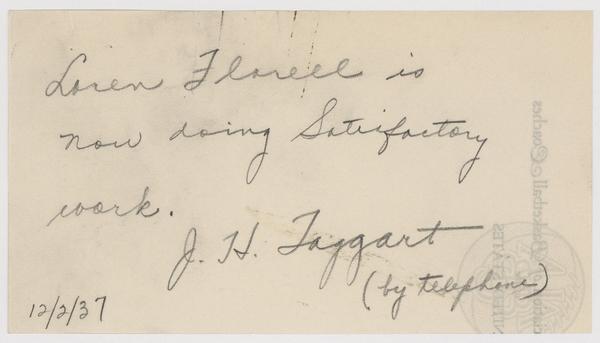 Loren Florell is
now doing Satisfactory
work.
J. H. Taggart
(by telephone)
12/2/37